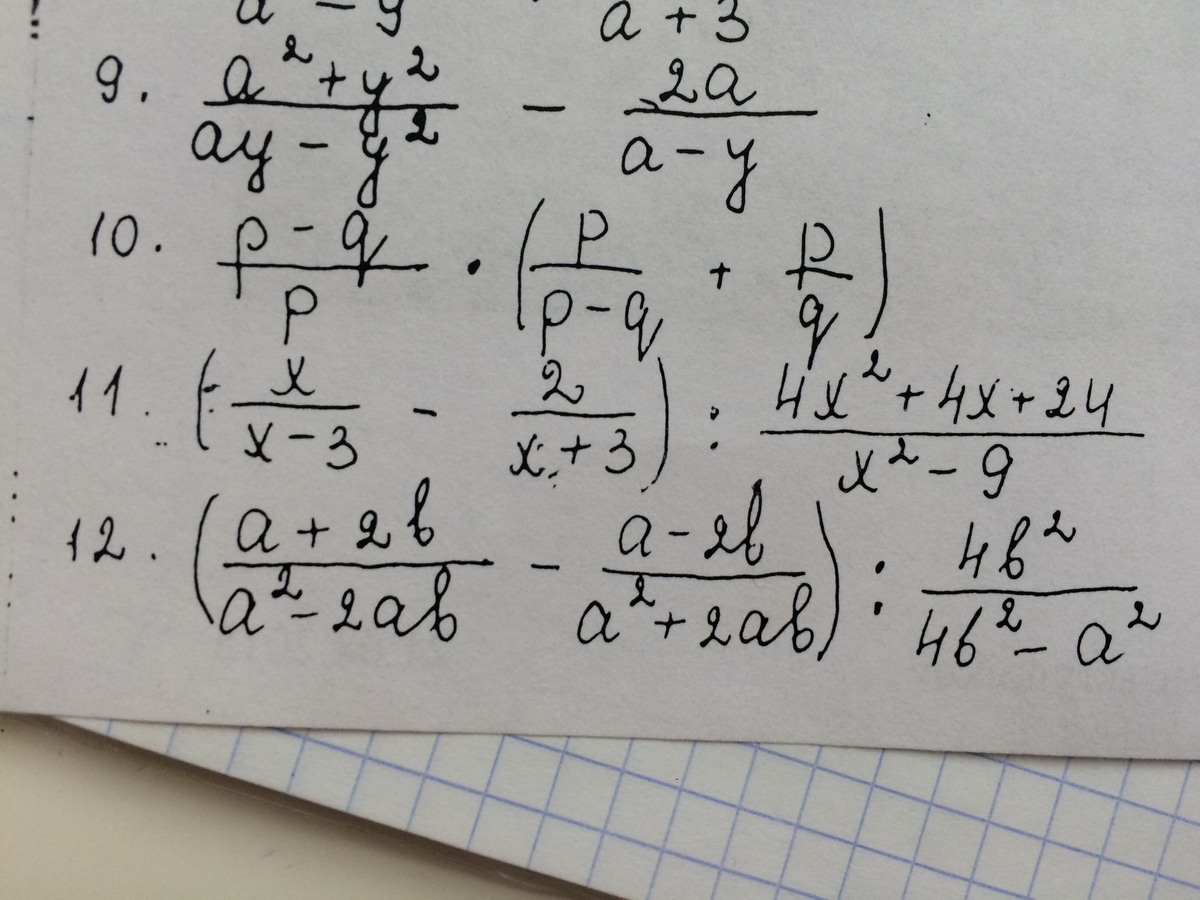 a - 9 a + 3
9. (a² + y²)/(ay - y²) - 2a/(a - y)
10. (p - q)/p · (p/(p - q) + p/q)
11. (x/(x - 3) - 2/(x + 3)) : (4x² + 4x + 24)/(x² - 9)
12. ((a + 2b)/(a² - 2ab) - (a - 2b)/(a² + 2ab)) : 4b²/(4b² - a²)